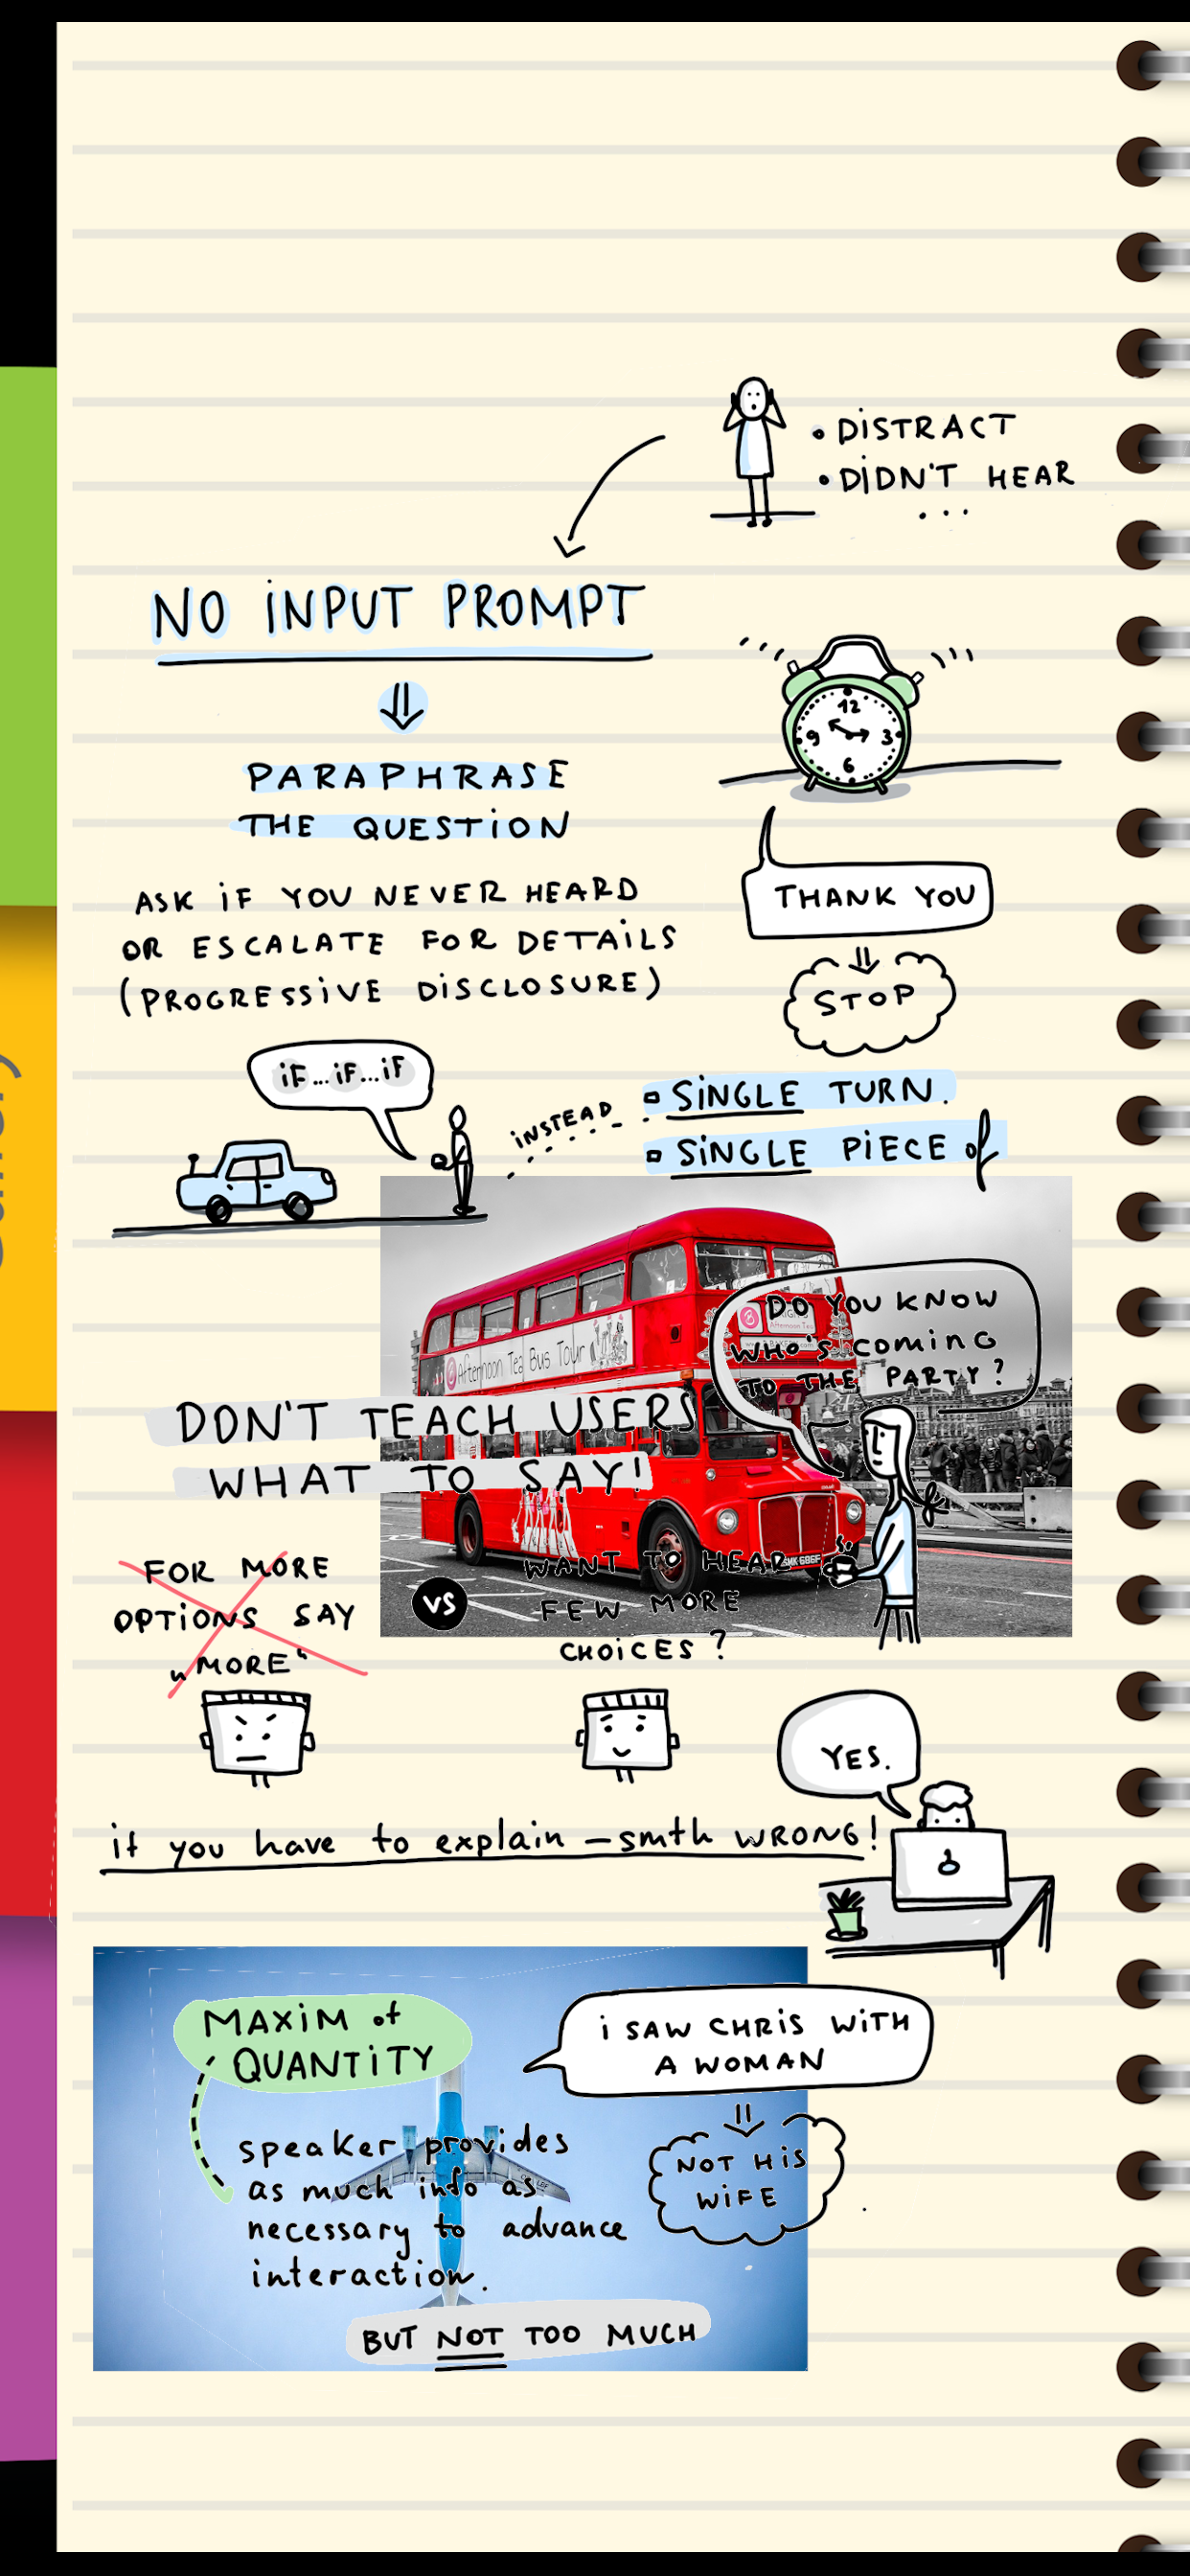 • DISTRACT
• DIDN'T HEAR
...
NO INPUT PROMPT
⇓
PARAPHRASE
THE QUESTION
ASK IF YOU NEVER HEARD
OR ESCALATE FOR DETAILS
(PROGRESSIVE DISCLOSURE)
12
9 3
6
THANK YOU
⇓
STOP
iF...iF...iF
INSTEAD
SINGLE TURN.
SINGLE PIECE of
DO YOU KNOW
WHO'S COMING
TO THE PARTY?
Afternoon Tea Bus Tour
Afternoon Tea
DON'T TEACH USERS
WHAT TO SAY!
FOR MORE
OPTIONS SAY
„MORE“
VS
WANT TO HEAR
FEW MORE
CHOICES?
YES.
if you have to explain – smth WRONG!
MAXIM of
QUANTITY
speaker provides
as much info as
necessary to advance
interaction.
BUT NOT TOO MUCH
i SAW CHRIS WITH
A WOMAN
⇓
NOT HIS
WIFE